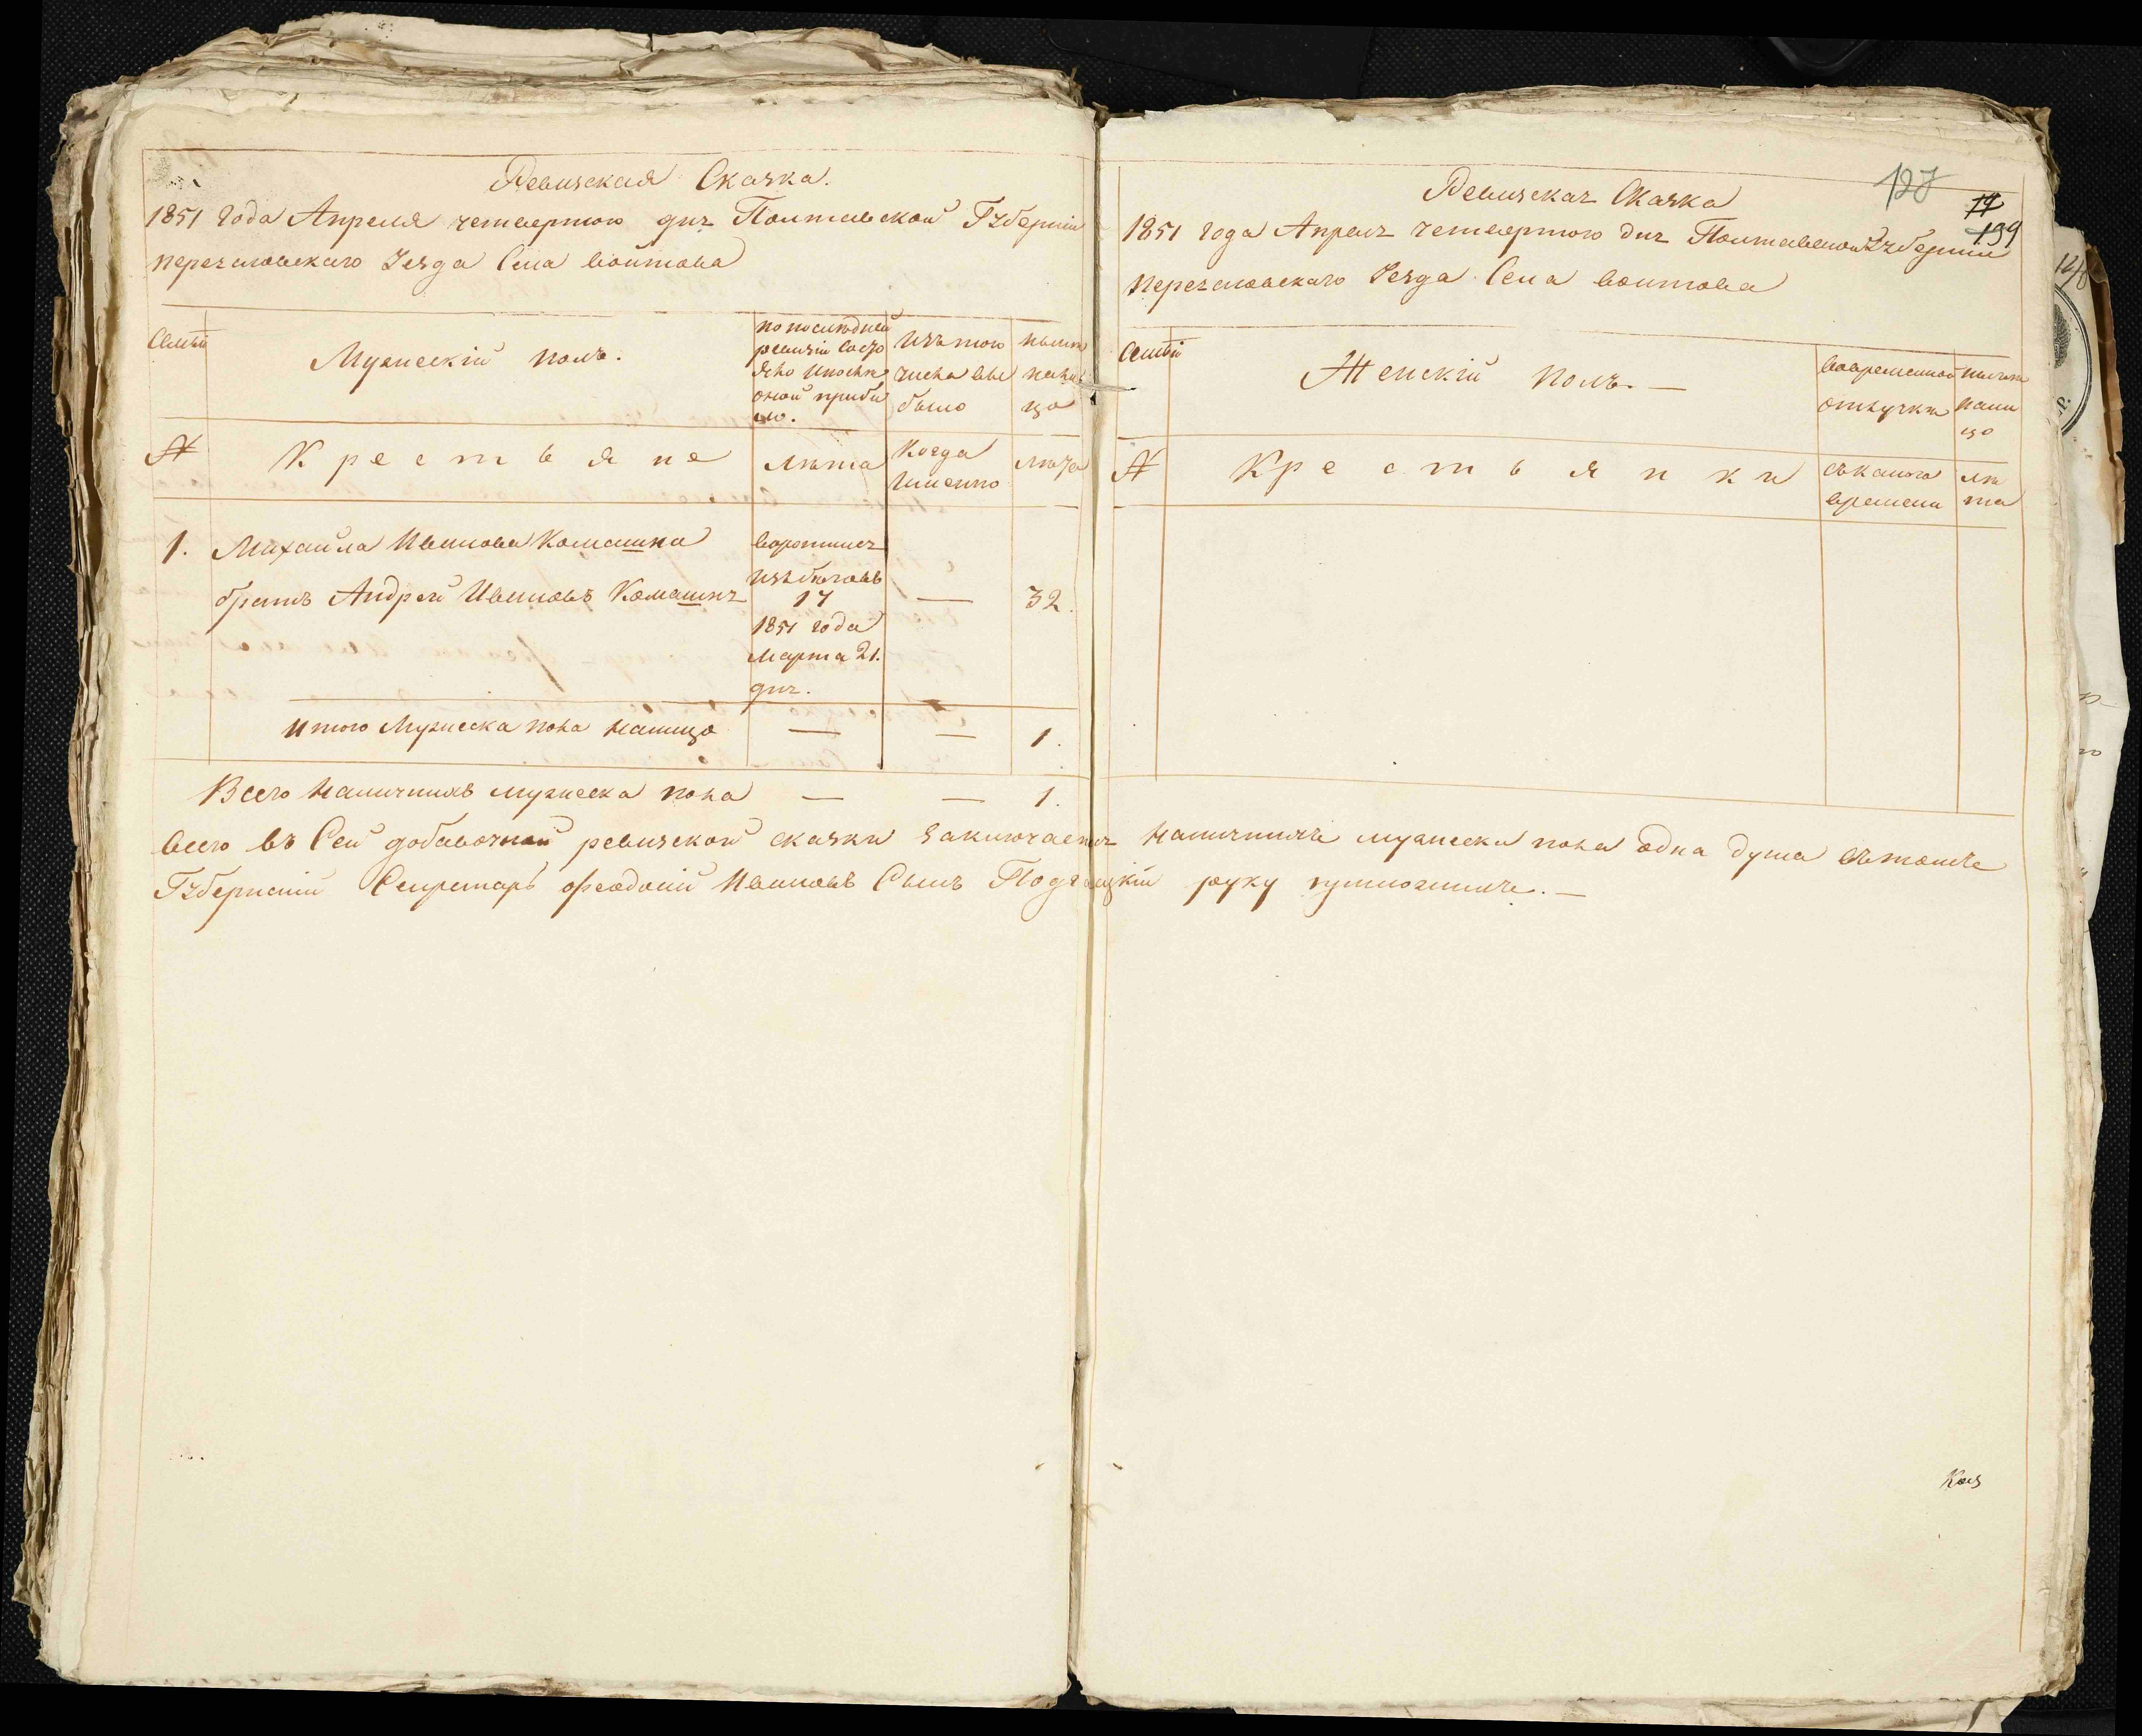 Ревизская Сказка.
1851 года Апреля четвертого дня Полтавской Губернии
переяславскаго Уезда Села воитова
Семьи
Мужескій полъ.
по последней
ревизіи состо
яло и после
оной прибы
ло.
Изъ того
числа вы
было
ныне
налицо
№
Крестьяне
лета
Когда
Именно
лета
1.
Михайла Иванова Комашка
братъ Андрей Ивановъ Комашка
воротился
изъ беговъ
17
1851 года
Марта 21.
дня.
—
32.
Итого Мужеска пола налицо — — 1.
Всего наличныхъ мужеска пола — — 1.
Ревизская Сказка
127
17
139
1851 года Апреля четвертого дня Полтавской Губернии
переяславскаго Уезда Села воитова
Семьи
Женскій полъ. —
во временной
отлучке
ныне
нали
цо
№
Крестьянки
съ какого
времени
ле
та
всего въ Сей добавочной ревизской сказки заключается наличныхъ мужеска пола одна душа въ томъ
Губернскій Секретарь Феодосій Ивановъ Сынъ руку —